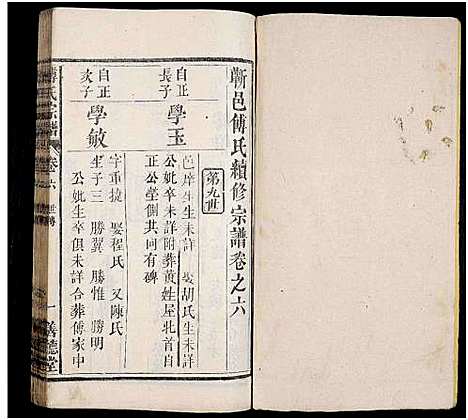 蘄邑傅氏續修宗譜卷之六
第九世
自正
長子
學玉
邑庠生生未詳 娶胡氏生未詳
公妣卒未詳附葬黃姓屋北首自
正公塋側共同有碑
自正
次子
學敏
字重捷 娶程氏 又陳氏
生子三 勝翼 勝惟 勝明
公妣生卒俱未詳合葬傅家中
傅氏宗譜
卷六 世傳
一善德堂